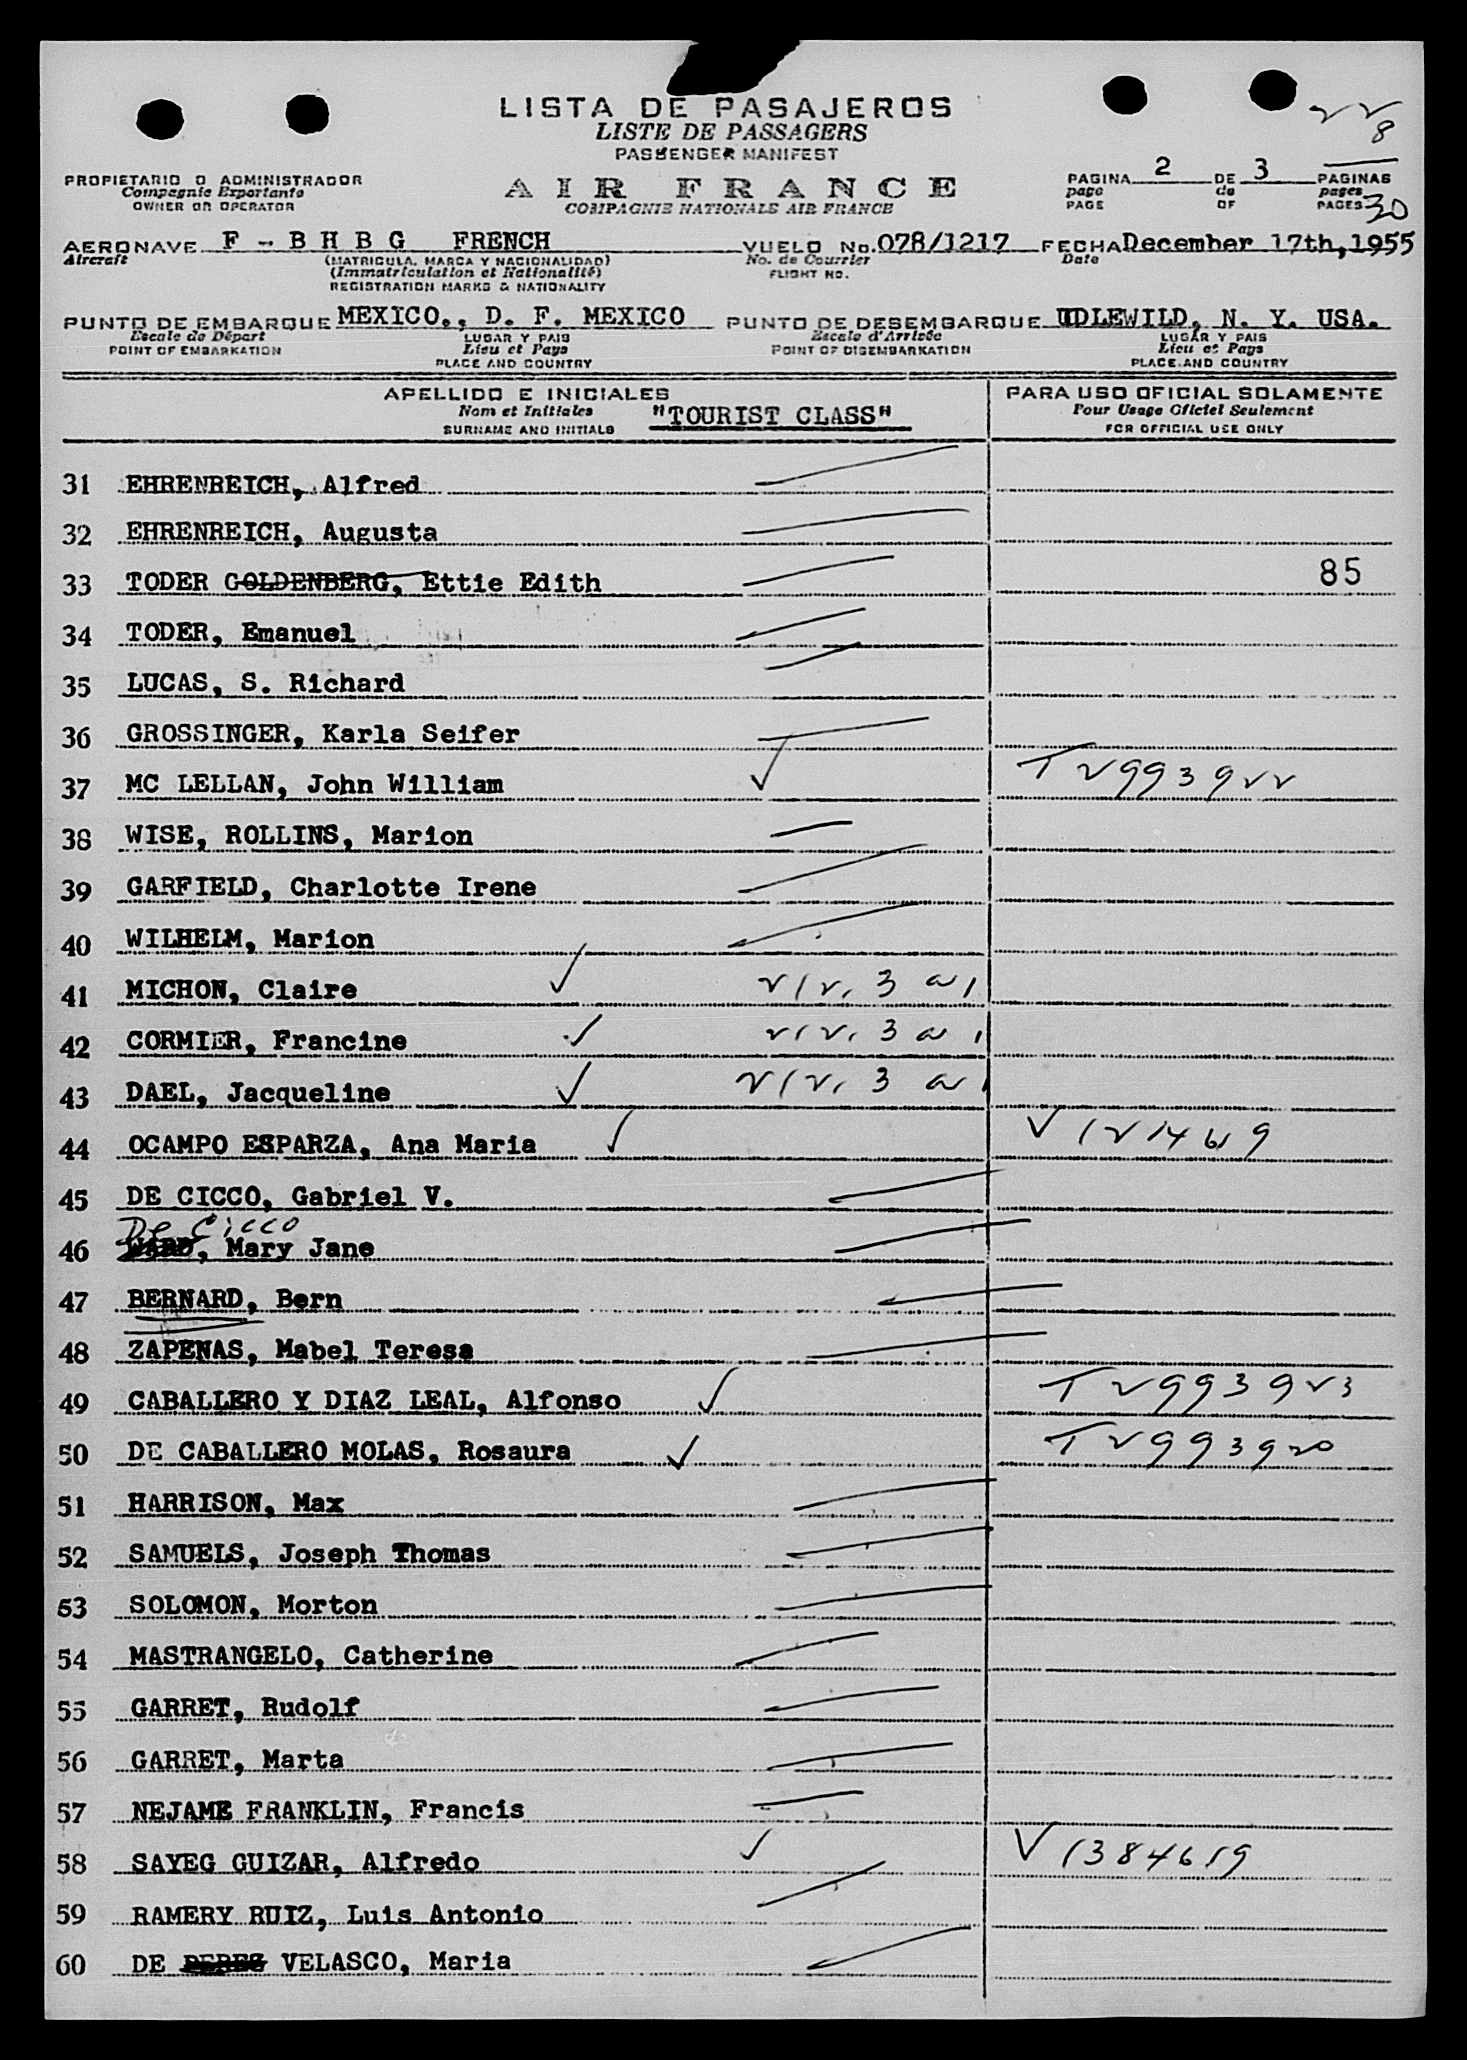 LISTA DE PASAJEROS
LISTE DE PASSAGERS
PASSENGER MANIFEST
22
8
30
PROPIETARIO O ADMINISTRADOR
Compagnie Exportante
OWNER OR OPERATOR
AIR FRANCE
COMPAGNIE NATIONALE AIR FRANCE
PAGINA 2 DE 3 PAGINAS
page de pages
PAGE OF PAGES
AERONAVE F - B H B G FRENCH VUELO No. 078/1217 FECHA December 17th, 1955
Aircraft (MATRICULA, MARCA Y NACIONALIDAD) No. de Courrier Date
(Immatriculation et Nationalité) FLIGHT NO.
REGISTRATION MARKS & NATIONALITY
PUNTO DE EMBARQUE MEXICO., D. F. MEXICO PUNTO DE DESEMBARQUE IDLEWILD, N. Y. USA.
Escale de Départ LUGAR Y PAIS Escale d'Arrivée LUGAR Y PAIS
POINT OF EMBARKATION Lieu et Pays POINT OF DISEMBARKATION Lieu et Pays
PLACE AND COUNTRY PLACE AND COUNTRY
APELLIDO E INICIALES PARA USO OFICIAL SOLAMENTE
Nom et Initiales "TOURIST CLASS" Pour Usage Officiel Seulement
SURNAME AND INITIALS FOR OFFICIAL USE ONLY
31 EHRENREICH, Alfred
32 EHRENREICH, Augusta
33 TODER GOLDENBERG, Ettie Edith 85
34 TODER, Emanuel
35 LUCAS, S. Richard
36 GROSSINGER, Karla Seifer
37 MC LELLAN, John William T2993922
38 WISE, ROLLINS, Marion
39 GARFIELD, Charlotte Irene
40 WILHELM, Marion
41 MICHON, Claire 212. 3 a 1
42 CORMIER, Francine 212. 3 a 1
43 DAEL, Jacqueline 212. 3 a 1
44 OCAMPO ESPARZA, Ana Maria V 1214619
45 DE CICCO, Gabriel V.
De Cicco
46 WARD, Mary Jane
47 BERNARD, Bern
48 ZAPENAS, Mabel Teresa
49 CABALLERO Y DIAZ LEAL, Alfonso T2993923
50 DE CABALLERO MOLAS, Rosaura T2993920
51 HARRISON, Max
52 SAMUELS, Joseph Thomas
53 SOLOMON, Morton
54 MASTRANGELO, Catherine
55 GARRET, Rudolf
56 GARRET, Marta
57 NEJAME FRANKLIN, Francis
58 SAYEG GUIZAR, Alfredo V 1384619
59 RAMERY RUIZ, Luis Antonio
60 DE PEREZ VELASCO, Maria